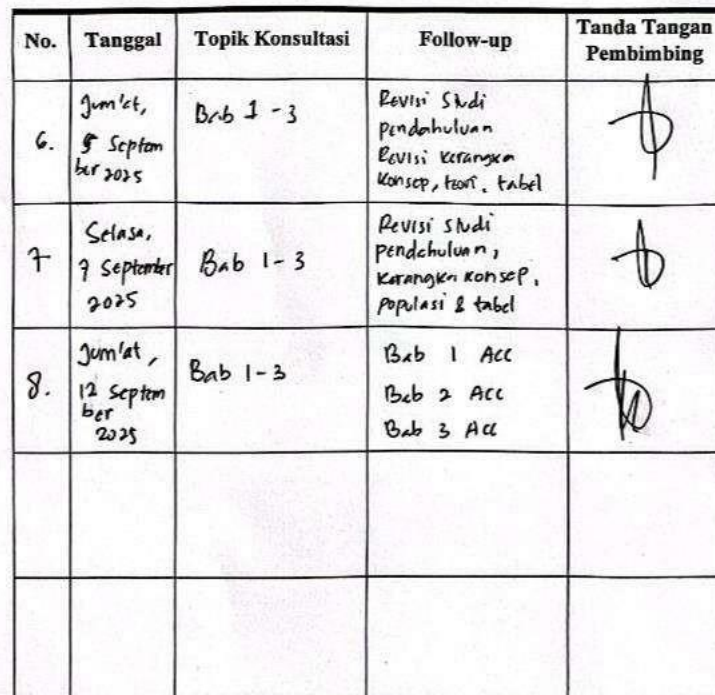 No. Tanggal Topik Konsultasi Follow-up Tanda Tangan
Pembimbing
6.
Jum'at,
5 Septem
ber 2025
Bab 1 - 3
Revisi Studi
pendahuluan
Revisi kerangka
konsep, teori, tabel
7
Selasa,
9 September
2025
Bab 1 - 3
Revisi studi
pendahuluan,
kerangka konsep,
populasi & tabel
8.
Jum'at,
12 Septem
ber
2025
Bab 1-3
Bab 1 Acc
Bab 2 Acc
Bab 3 Acc